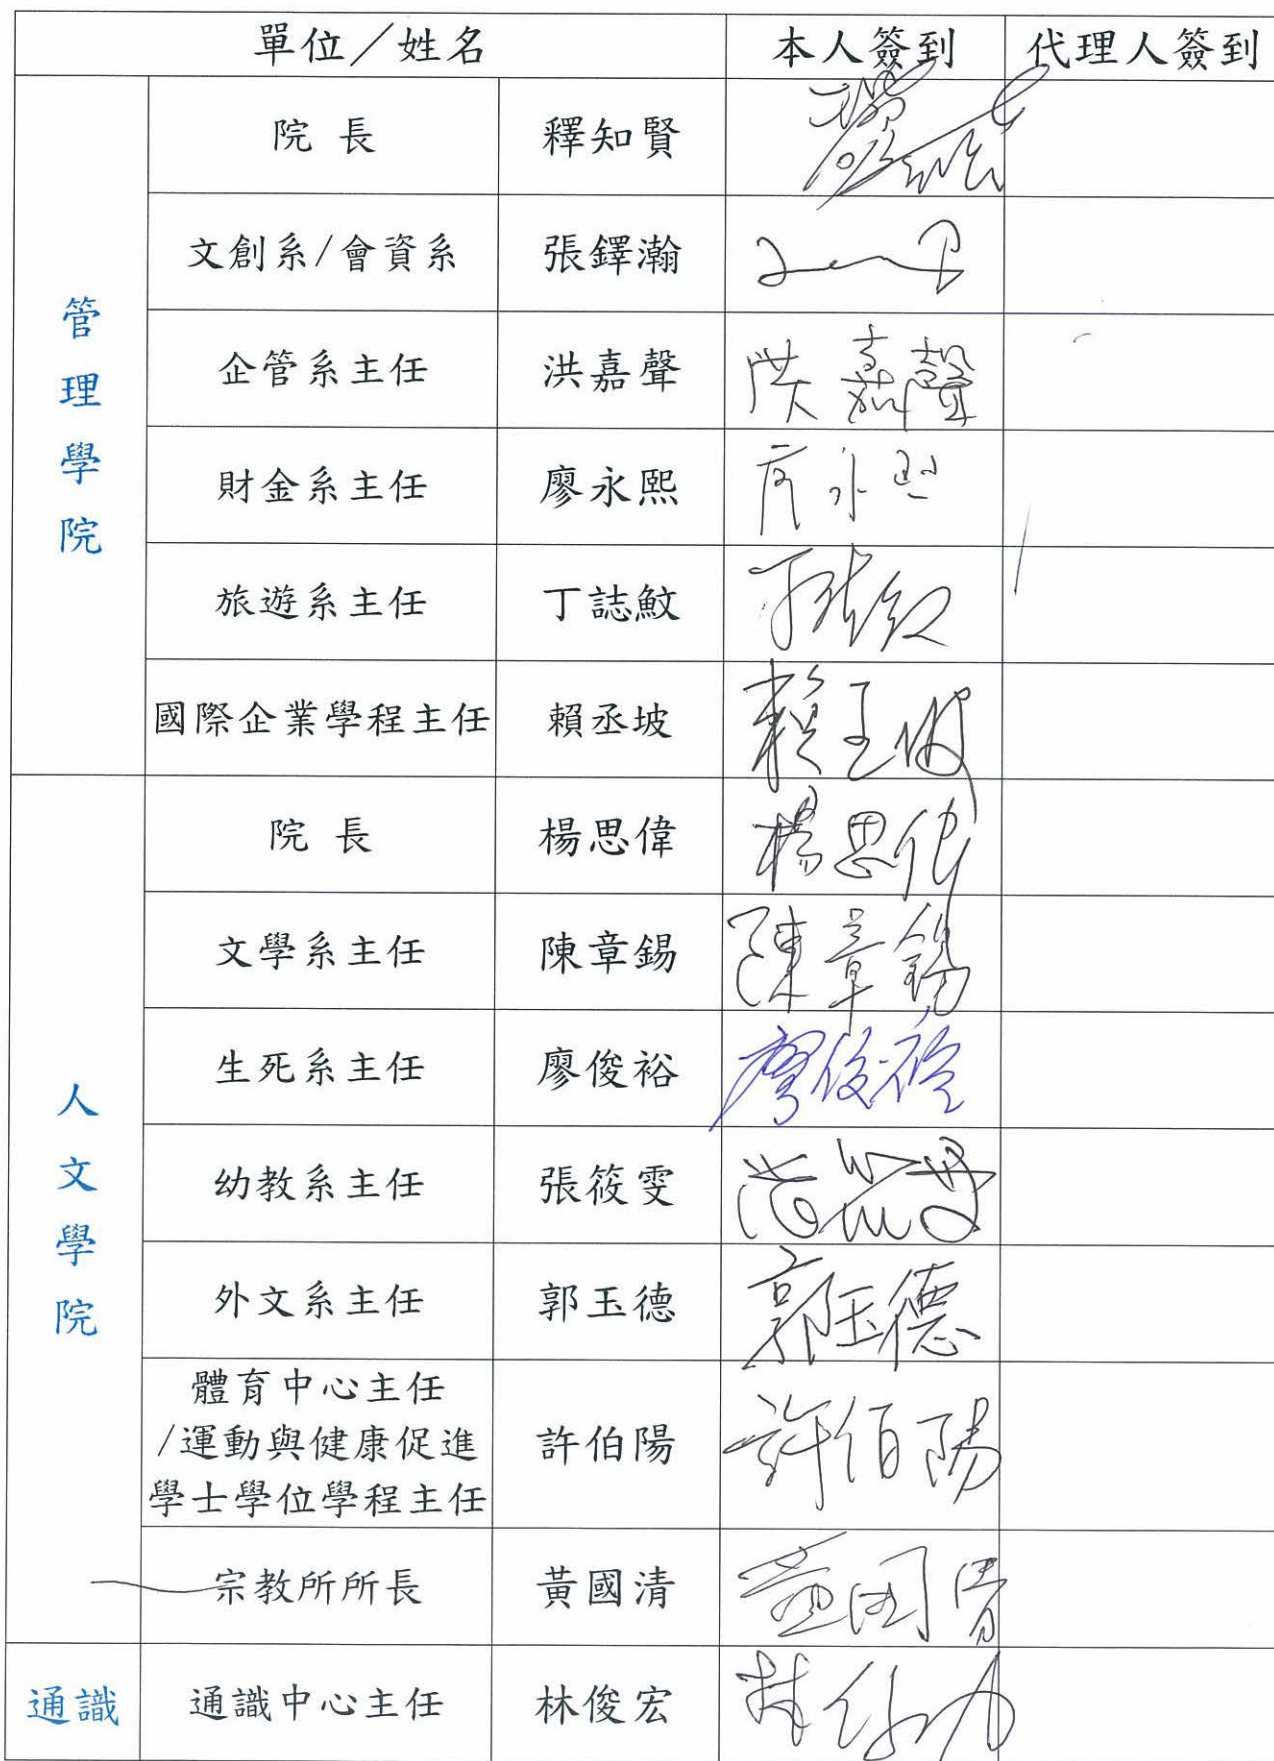 單位／姓名 本人簽到 代理人簽到
管理學院
院長 釋知賢
文創系/會資系 張鐸瀚
企管系主任 洪嘉聲 洪嘉聲
財金系主任 廖永熙
旅遊系主任 丁誌魰
國際企業學程主任 賴丞坡
人文學院
院長 楊思偉 楊思偉
文學系主任 陳章錫 陳章錫
生死系主任 廖俊裕 廖俊裕
幼教系主任 張筱雯
外文系主任 郭玉德 郭玉德
體育中心主任
/運動與健康促進
學士學位學程主任
許伯陽 許伯陽
宗教所所長 黃國清 黃国清
通識 通識中心主任 林俊宏